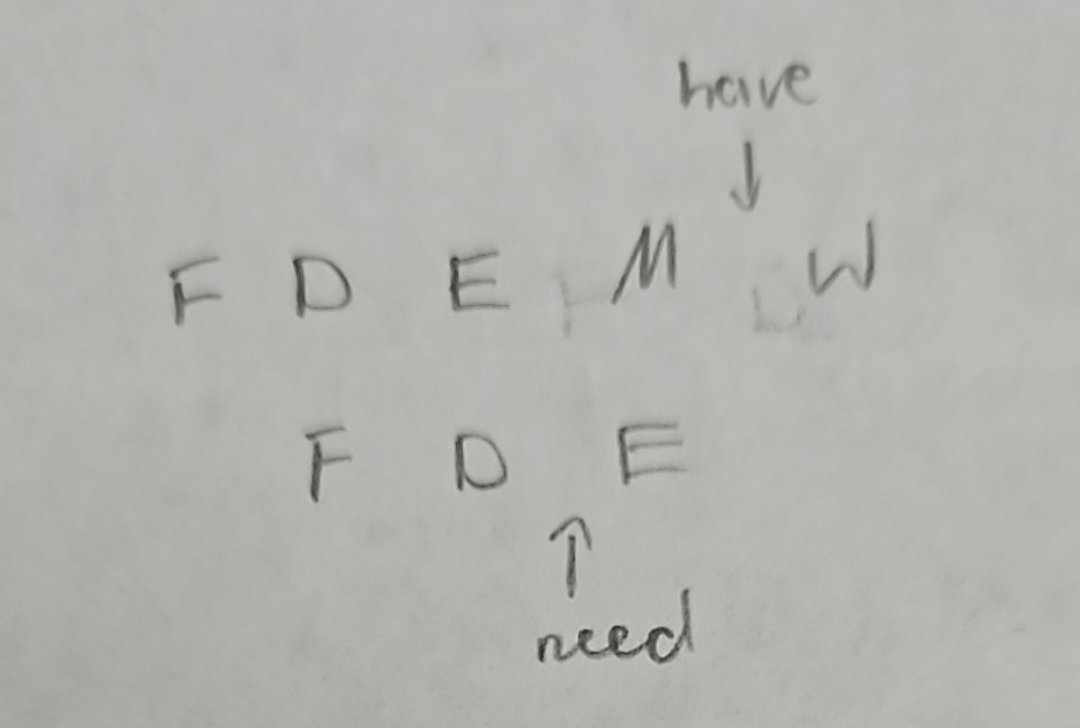 have
↓
F D E M W
F D E
↑
need